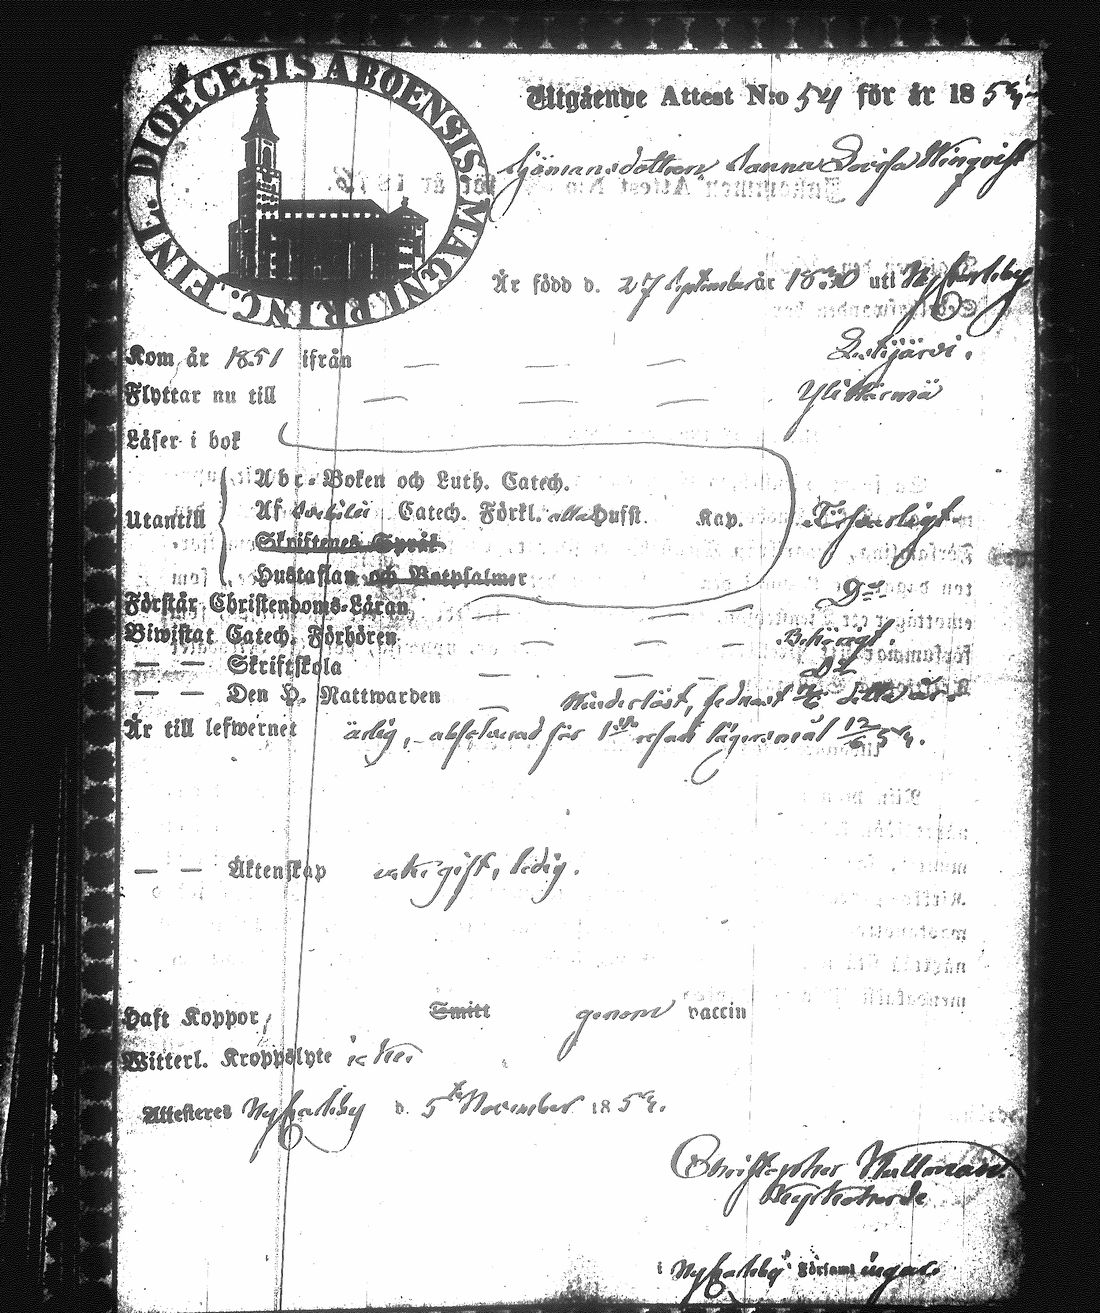 DIOECESIS ABOENSIS MAGNI PRINC. FINL.
Utgående Attest N:o 54 för år 185
Sjömansdottren Sanna Lovisa Winqvist
Är född d. 27 September år 1830 uti Nykarleby
Kom år 1851 ifrån — — — Lestijärvi.
Flyttar nu till — — — Ylihärmä
Läser i bok
Utantill
Abc-Boken och Luth. Catech.
Af Catech. Förkl. alla Husft. Kap. Försvarligt
Skriftenes Språk
Hustaflan och Botpsalmer
Förstår Christendoms-Läran — — —
Biwistat Catech. Förhören — — — Behörigt.
— — Skriftskola — — —
— — Den H. Nattwarden —
Är till lefwernet ärlig, absolverad för lägersmål 12/6
— — Äktenskap icke gift, ledig.
Haft Koppor, Smitt genom vaccin
Witterl. Kroppslyte icke.
Attesteres Nykarleby d. 5 November 185
Christopher
Kyrkoherde
i Nykarleby Församl